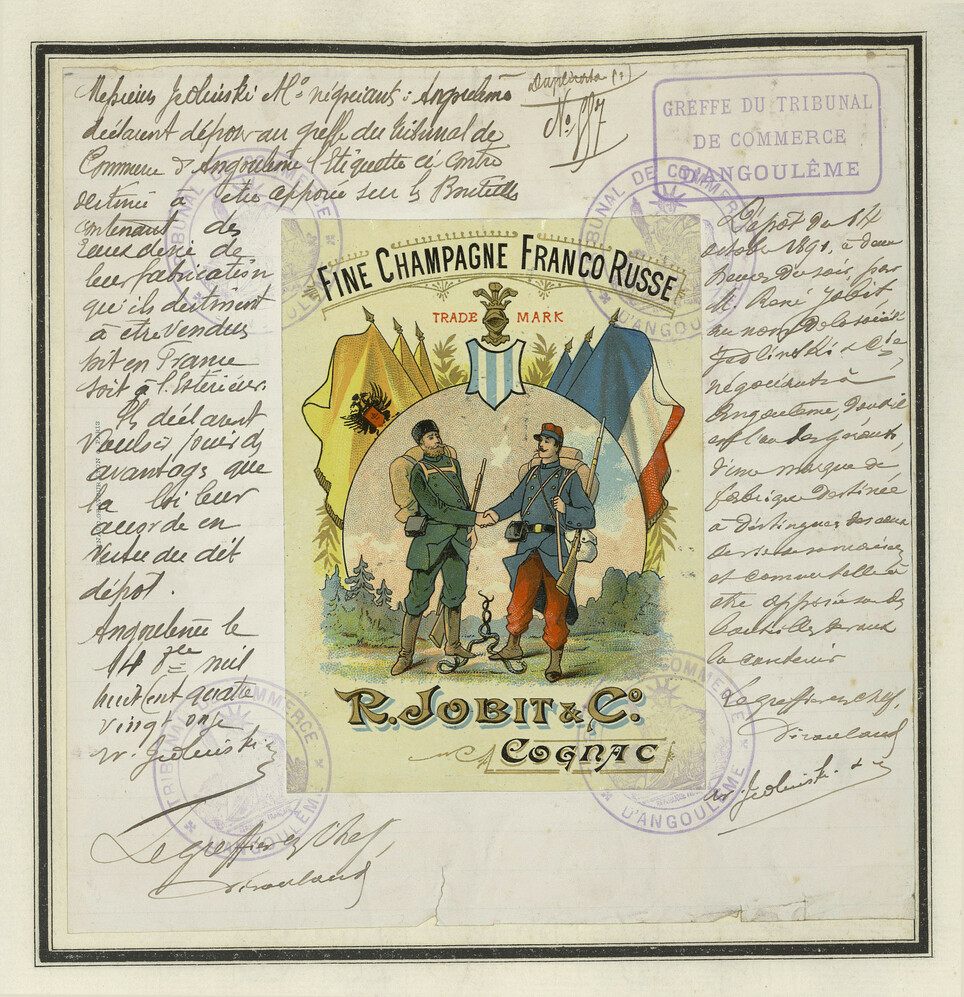 Messieurs Jedlinski & Cie négociants à Angoulême
déclarent déposer au greffe du tribunal de
Commerce d'Angoulême l'Etiquette ci contre
destinée à être apposée sur les Bouteilles
contenant des
Eaux de vie de
leur fabrication
qu'ils destinent
à être vendues
soit en France
soit à l'Extérieur.
Ils déclarent
vouloir jouir des
avantages que
la loi leur
accorde en
vertu du dit
dépot.
Angoulême le
14 8bre mil
huit cent quatre
vingt onze
W. Jedlinski
Le greffier en Chef,
Duplicata
No
GREFFE DU TRIBUNAL
DE COMMERCE
D'ANGOULÊME
FINE CHAMPAGNE FRANCO RUSSE
TRADE MARK
R. JOBIT & Co.
COGNAC
Dépôt du 14
octobre 1891, à deux
heures du soir, par
M. René Jobit,
au nom de la société
Jedlinski & Cie,
négociants à
Angoulême, dont il
est l'un des gérants,
d'une marque de
fabrique destinée
à distinguer ses eaux
de vie
et
être apposée sur les
bouteilles
la contenir
Le greffier en chef,
W. Jedlinski & Cie
TRIBUNAL DE COMMERCE
D'ANGOULÊME
TRIBUNAL DE COMMERCE
D'ANGOULÊME
TRIBUNAL DE COMMERCE
D'ANGOULÊME
TRIBUNAL DE COMMERCE
D'ANGOULÊME